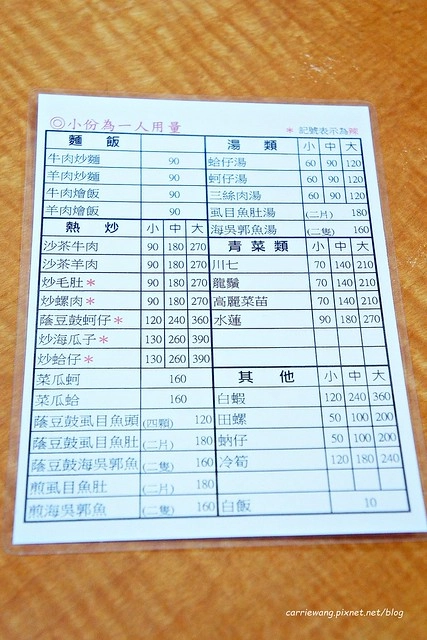 ◎小份為一人用量
* 記號表示為辣
麵 飯
牛肉炒麵 90
羊肉炒麵 90
牛肉燴飯 90
羊肉燴飯 90
熱 炒 小 中 大
沙茶牛肉 90 180 270
沙茶羊肉 90 180 270
炒毛肚* 90 180 270
炒螺肉* 90 180 270
蔭豆鼓蚵仔* 120 240 360
炒海瓜子* 130 260 390
炒蛤仔* 130 260 390
菜瓜蚵 160
菜瓜蛤 160
蔭豆鼓虱目魚頭 (四顆) 120
蔭豆鼓虱目魚肚 (二片) 180
蔭豆鼓海吳郭魚 (二隻) 160
煎虱目魚肚 (二片) 180
煎海吳郭魚 (二隻) 160
湯 類 小 中 大
蛤仔湯 60 90 120
蚵仔湯 60 90 120
三絲肉湯 60 90 120
虱目魚肚湯 (二片) 180
海吳郭魚湯 (二隻) 160
青 菜 類 小 中 大
川七 70 140 210
龍鬚 70 140 210
高麗菜苗 70 140 210
水蓮 90 180 270
其 他 小 中 大
白蝦 120 240 360
田螺 50 100 200
蚋仔 50 100 200
冷筍 120 180 240
白飯 10
carriewang.pixnet.net/blog